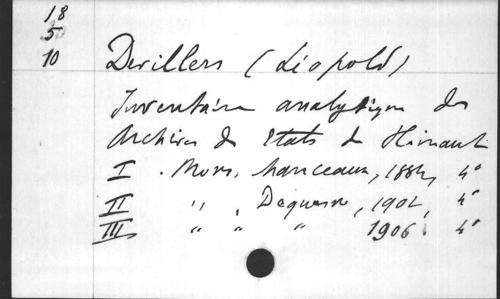 18
5
10
Devillers (Léopold)
Inventaire analytique des
Archives des Etats de Hainaut
I . Mons, Manceaux, 1884, 4°
II " , Dequesne, 1901, 4°
III " " " 1906. 4°